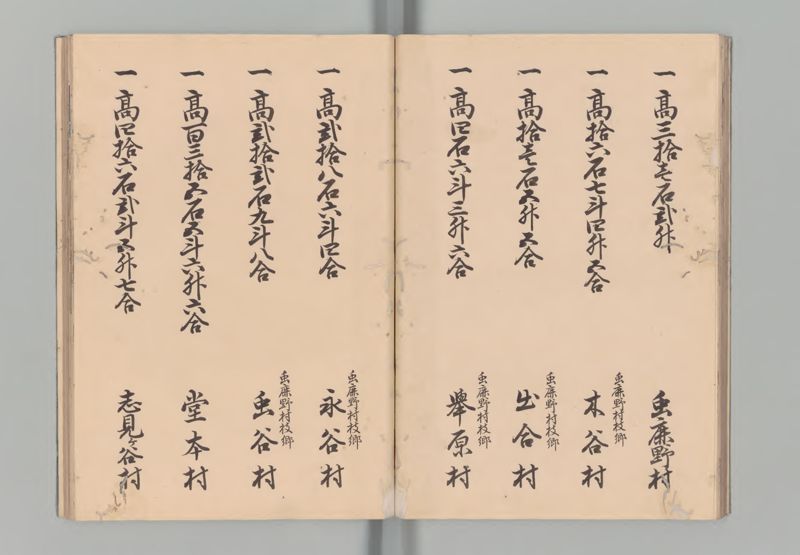 一高三拾壱石弐升 虫鹿野村
一高拾六石七斗四升五合
虫鹿野村枝郷
木谷村
一高拾壱石五升五合
虫鹿野村枝郷
出合村
一高四石六斗三升六合
虫鹿野村枝郷
挙原村
一高弐拾八石六斗四合
虫鹿野村枝郷
永谷村
一高弐拾弐石九斗八合
虫鹿野村枝郷
虫谷村
一高百三拾五石五斗六升六合 堂本村
一高四拾六石弐斗五升七合 志見谷村